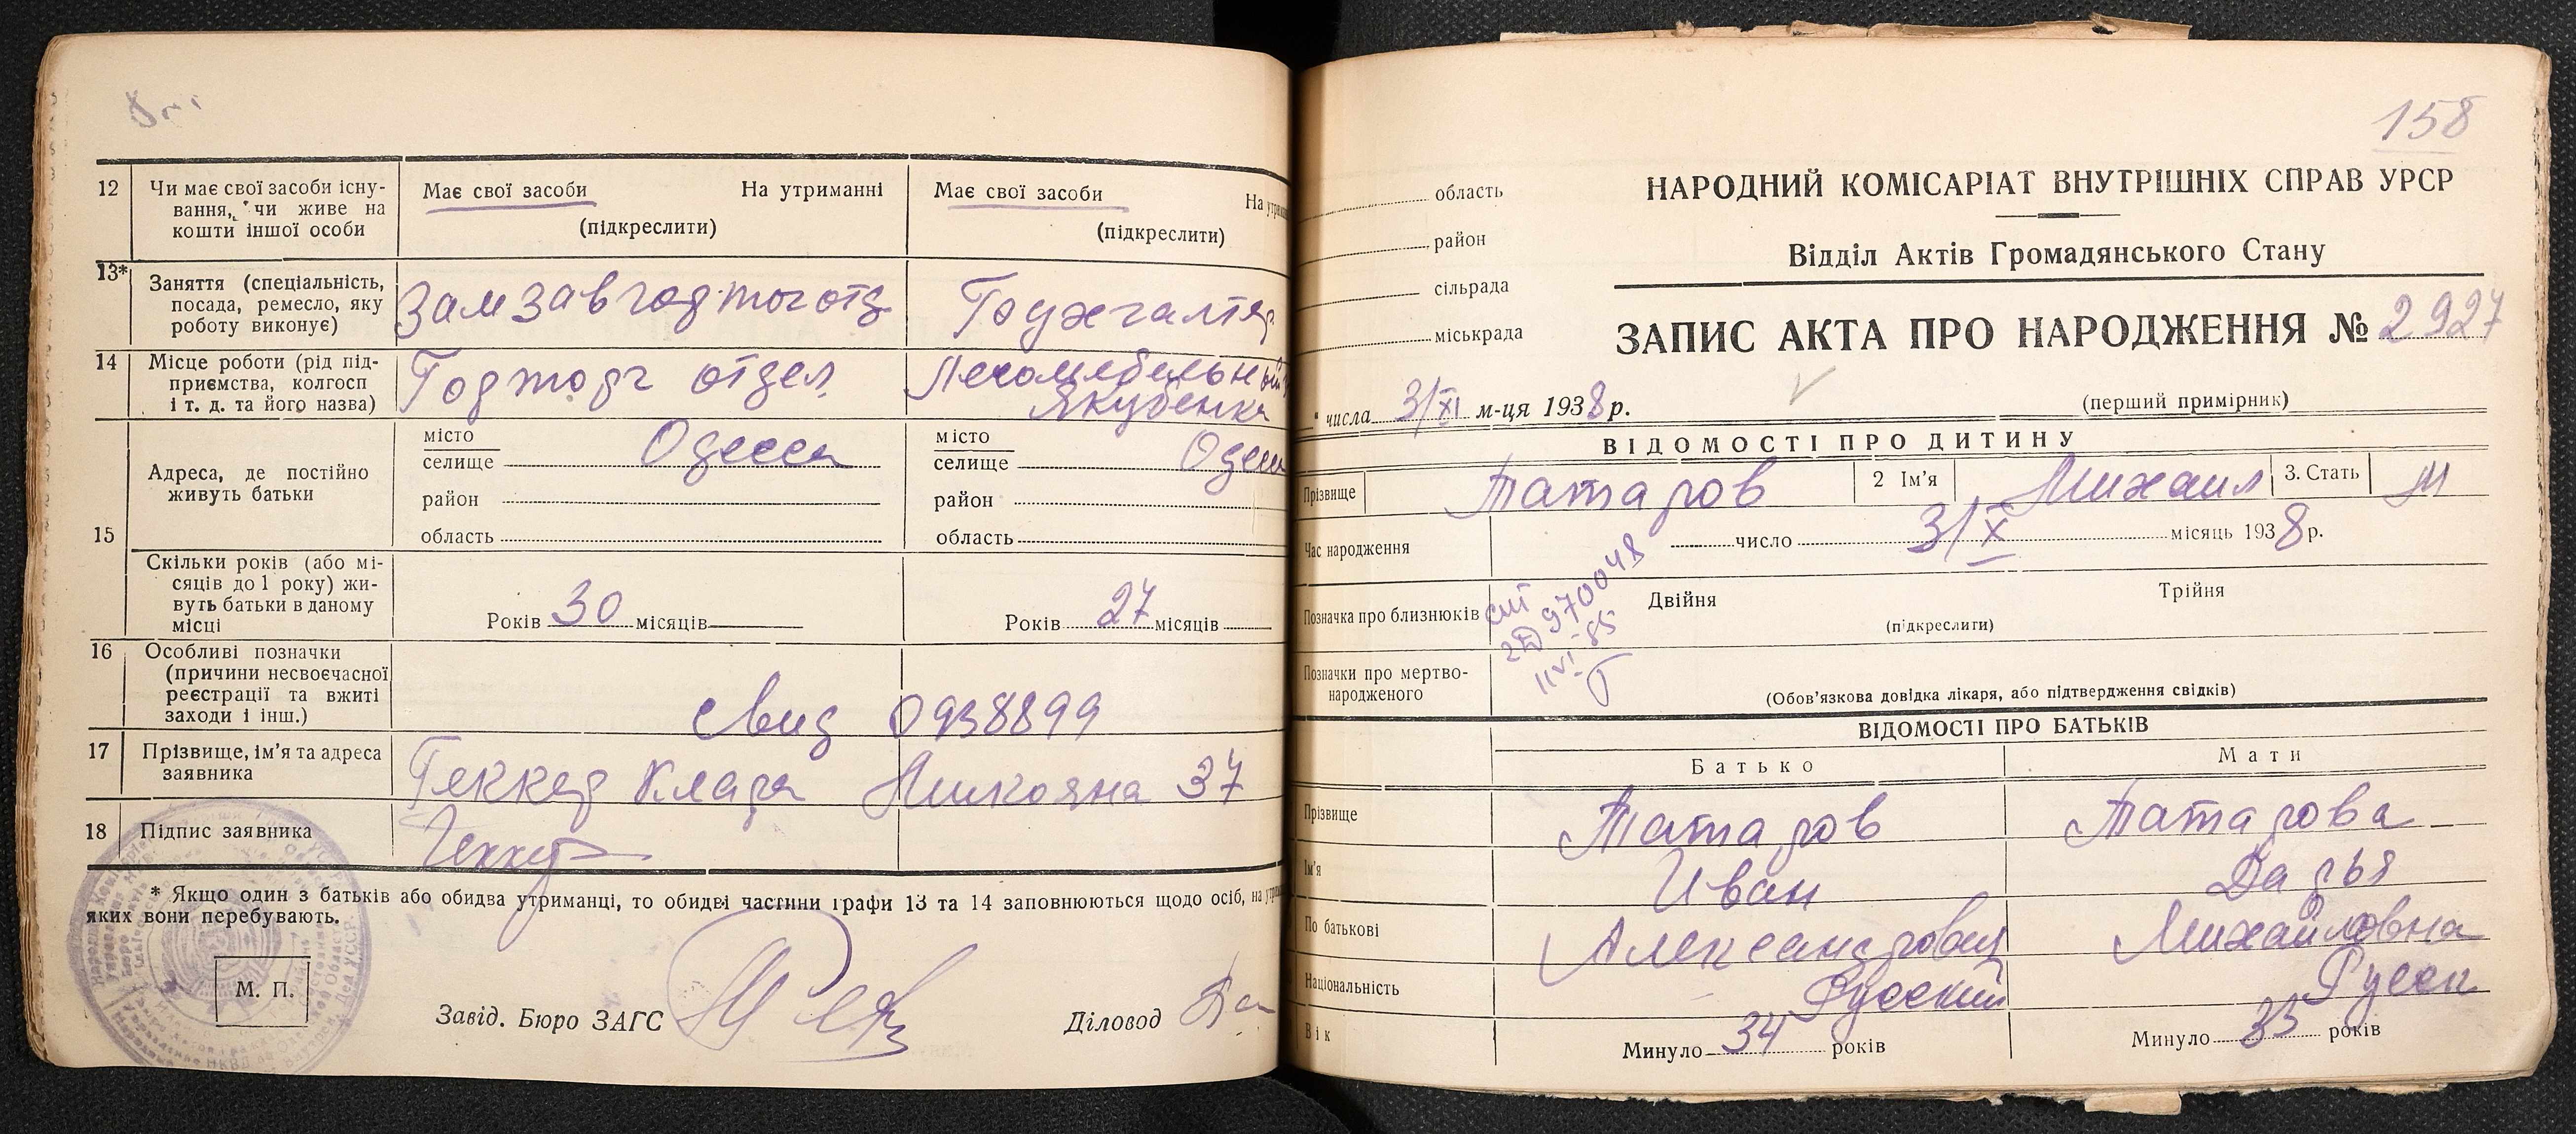 12
Чи має свої засоби існу-
вання, чи живе на
кошти іншої особи
Має свої засоби На утриманні
(підкреслити)
Має свої засоби На
(підкреслити)
13*
Заняття (спеціальність,
посада, ремесло, яку
роботу виконує)
14
Місце роботи (рід під-
приємства, колгосп
і т. д. та його назва)
отдел
Якубенка
15
Адреса, де постійно
живуть батьки
місто
селище Одесса
район
область
місто
селище
район
область
Скільки років (або мі-
сяців до 1 року) жи-
вуть батьки в даному
місці
Років 30 місяців
Років 27 місяців
16
Особливі позначки
(причини несвоєчасної
реєстрації та вжиті
заходи і інш.)
Свид 0938899
17
Прізвище, ім'я та адреса
заявника
Геккер Клара Микояна 37
18
Підпис заявника
* Якщо один з батьків або обидва утриманці, то обидві частини графи 13 та 14 заповнюються щодо осіб, на
яких вони перебувають.
М. П.
Завід. Бюро ЗАГС
Діловод
158
область
район
сільрада
міськрада
НАРОДНИЙ КОМІСАРІАТ ВНУТРІШНІХ СПРАВ УРСР
Відділ Актів Громадянського Стану
ЗАПИС АКТА ПРО НАРОДЖЕННЯ № 2927
" числа 3/XI м-ця 1938 р.
(перший примірник)
ВІДОМОСТІ ПРО ДИТИНУ
Прізвище Татаров 2 Ім'я Михаил 3. Стать М
Час народження число 31 X місяць 1938 р.
Позначка про близнюків Двійня Трійня
(підкреслити)
970048
Позначки про мертво-
народженого
(Обов'язкова довідка лікаря, або підтвердження свідків)
ВІДОМОСТІ ПРО БАТЬКІВ
Батько Мати
Прізвище Татаров Татарова
Ім'я Иван Дарья
По батькові Александрович Михайловна
Національність Русский Русск
Вік Минуло 34 років Минуло 35 років